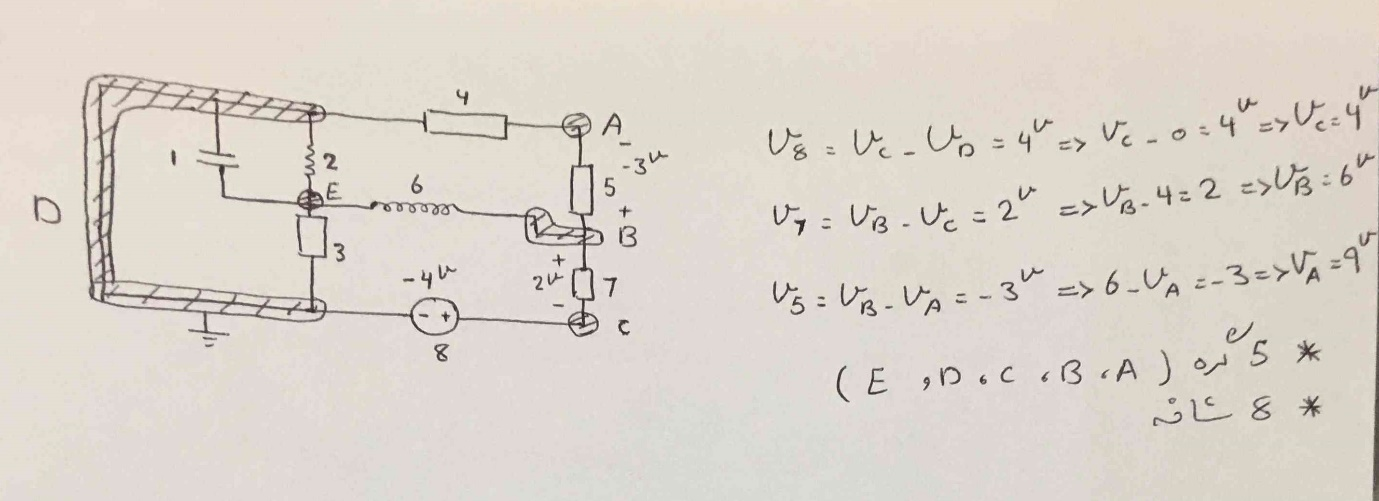 4
A
-
-3v
1
2
5
E
6
+
D
B
3
+
-4v
2v
7
-
- +
C
8
V8 = VC - VD = 4v => VC - 0 = 4v => VC = 4v
V7 = VB - VC = 2v => VB - 4 = 2 => VB = 6v
V5 = VB - VA = -3v => 6 - VA = -3 => VA = 9v
* 5 گره (A، B، C، D، E)
* 8 شاخه